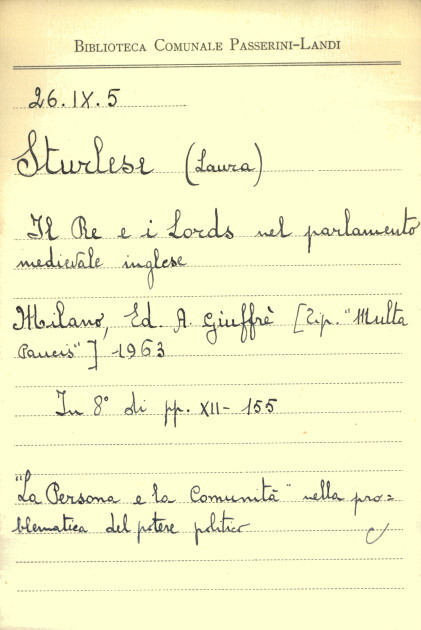 BIBLIOTECA COMUNALE PASSERINI-LANDI
26.IX.5
Sturlese (Laura)
Il Re e i Lords nel parlamento
medievale inglese
Milano, Ed. A. Giuffrè [Tip. "Multa
Paucis"] 1963
In 8° di pp. XII - 155
"La Persona e la Comunità" nella pro=
blematica del potere politico